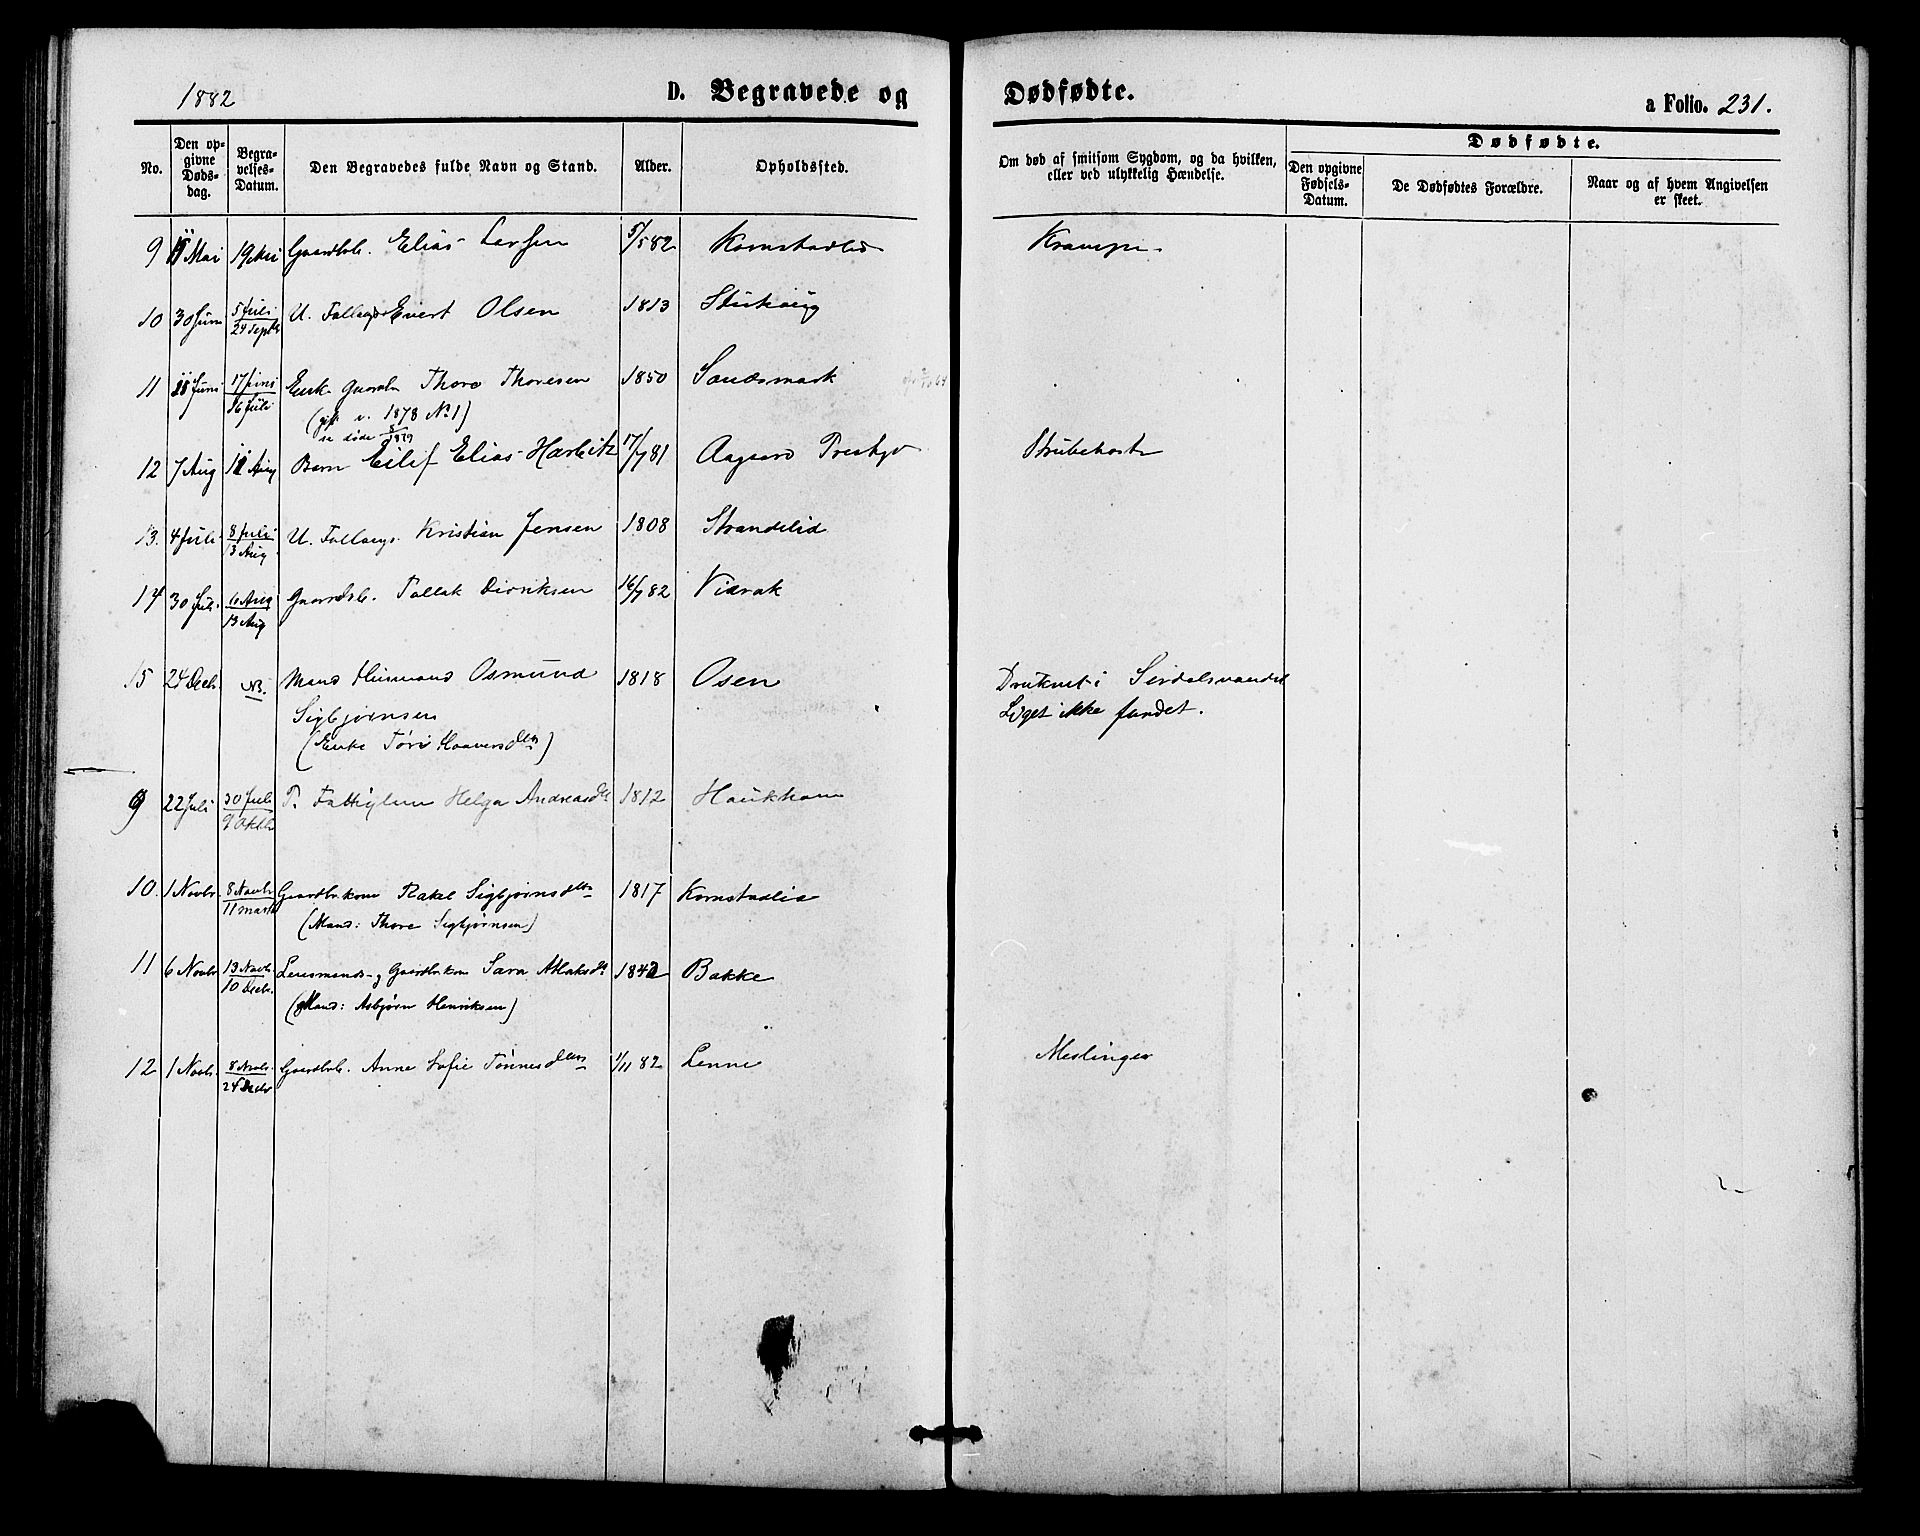 1882 D. Begravede og Dødfødte. a Folio. 231.
No. Den opgivne Dødsdag. Begravelses-Datum. Den Begravedes fulde Navn og Stand. Alder. Opholdssted. Om død af smitsom Sygdom, og da hvilken, eller ved ulykkelig Hændelse. Dødfødte. Den opgivne Fødsels-Datum. De Dødfødtes Forældre. Naar og af hvem Angivelsen er skeet.
9 11 Mai 19 Mai Gaardbb. Elias Larsen 5/5 82 Kornstadlid Krampe
10 30 Juni 5 Juli / 24 Septb U. Follaugs Evert Olsen 1813
11 Juni 17 Juni / 16 Juli Enk. Gaardbr Thore Thoresen 1850 Sandsmark
(gift v. 1878 No 1)
12 7 Aug 11 Aug Barn Eilif Elias Harbitz 17/7 81 Aagaard Prestgd Strubehoste
13. 4 Juli 8 Juli / 13 Aug U. Follaugs. Kristian Jensen 1808 Strandelid
14 30 Jul. 6 Aug / 13 Aug Gaardbb. Tollak Diriksen 16/7 82 Vidrak
15 24 Decb. NB. Mand Husmand Osmund 1818 Osen Druknet i Sirdalsvandet
Sigbjørnsen Liget ikke fundet.
(Enke Tøri Haaversdttr)
9 22 Juli 30 Juli / 9 Oktb T. Fattiglem Helga Andreasdtr 1812 Haukhom
10. 1 Novbr. 8 Novbr / 11 Marts Gaardbrkone Rakel Sigbjørnsdttr 1817 Kornstadlid
(Mand: Thore Sigbjørnsen)
11 6 Novbr 13 Novb. / 10 Decbr. Lensmands- og Gaardbrkon Sara Atlaksdtr 1842 Bakke
(Mand: Asbjørn Henriksen)
12 1 Novbr. 8 Novbr. / 24 Decbr Gaardbrb. Anne Sofie Tønnesdttr 1/11 82 Lenne Meslinger